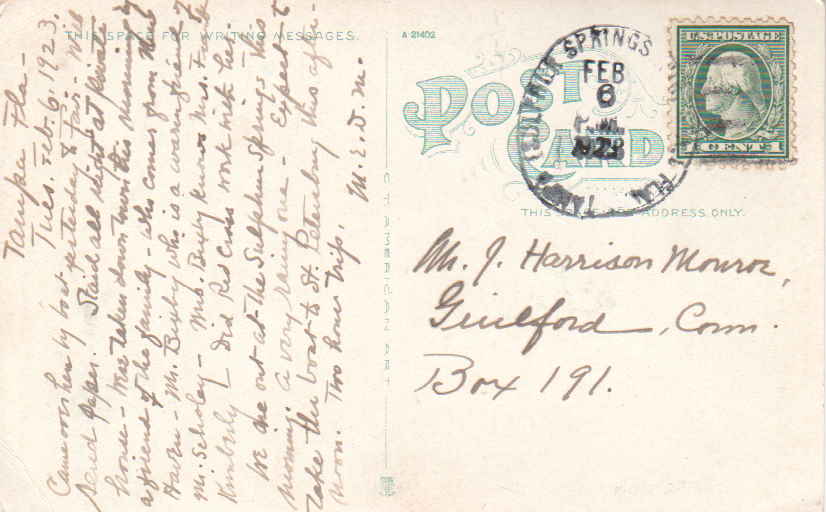 THIS SPACE FOR WRITING MESSAGES.
Tampa Fla —
Tues. Feb. 6, 1923.
Came over here by boat yesterday & Fair. Will
send paper. Staid all night at private
house — Was taken down town this morning by
a friend of the family — who comes from New
Haven — Mr. Bixby who is a warm friend of
Mr. Scholey — Mrs. Bixby knows Mrs. Frank
Kimberly — Did Red Cross work with her.
We are out at the Sulphur Springs this
morning. A very rainy one — Expect to
take the boat to St. Petersburg this after-
noon. Two hours trip.
M. E. D. M.
A 21402
POST
CARD
THIS SPACE FOR ADDRESS ONLY.
SULPHUR SPRINGS
FEB
6
1923
TAMPA FLA.
U.S. POSTAGE
1 CENTS 1
Mr. J. Harrison Monroe,
Guilford, Conn.
Box 191.
C. T. AMERICAN ART